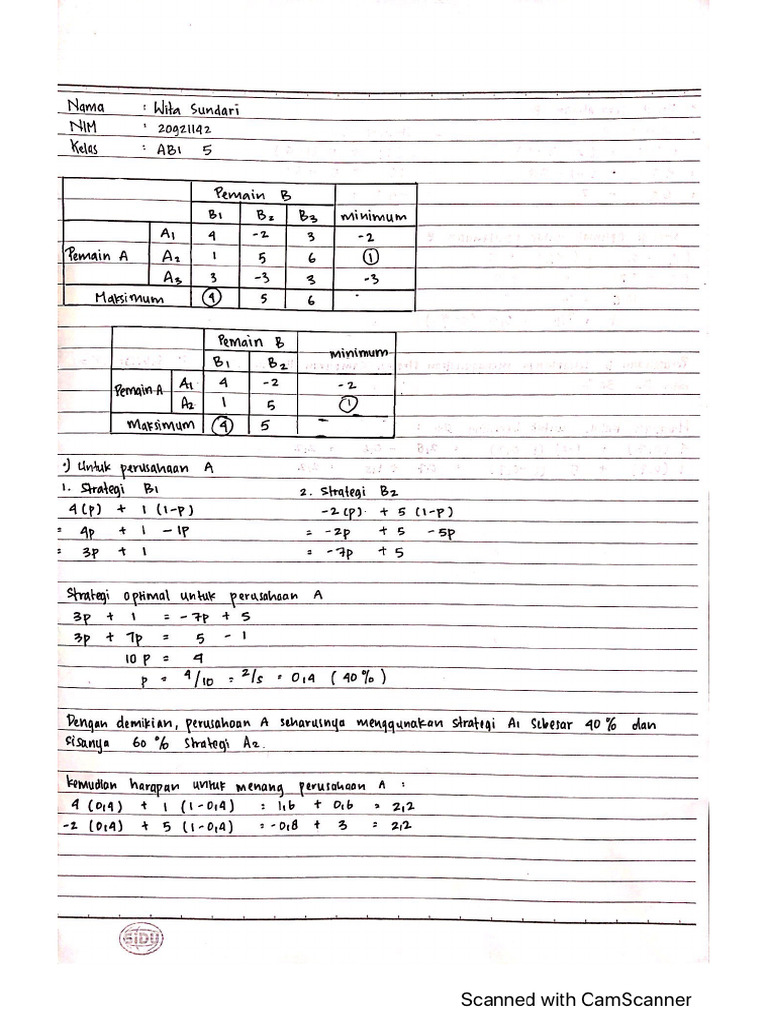 Nama : Wita Sundari
NIM : 20921142
Kelas : AB1 5
Pemain B
B1 B2 B3 minimum
A1 4 -2 3 -2
Pemain A A2 1 5 6 1
A3 3 -3 3 -3
Maksimum 4 5 6 -
Pemain B
B1 B2 minimum
Pemain A A1 4 -2 -2
A2 1 5 1
Maksimum 4 5 -
•) Untuk perusahaan A
1. Strategi B1 2. Strategi B2
4(p) + 1 (1-p) -2(p) + 5 (1-p)
= 4p + 1 - 1p = -2p + 5 - 5p
= 3p + 1 = -7p + 5
Strategi optimal untuk perusahaan A
3p + 1 = -7p + 5
3p + 7p = 5 - 1
10 p = 4
p = 4/10 = 2/5 = 0,4 (40%)
Dengan demikian, perusahaan A seharusnya menggunakan strategi A1 sebesar 40% dan
sisanya 60% strategi A2.
kemudian harapan untuk menang perusahaan A :
4 (0,4) + 1 (1-0,4) = 1,6 + 0,6 = 2,2
-2 (0,4) + 5 (1-0,4) = -0,8 + 3 = 2,2
SIDU
Scanned with CamScanner